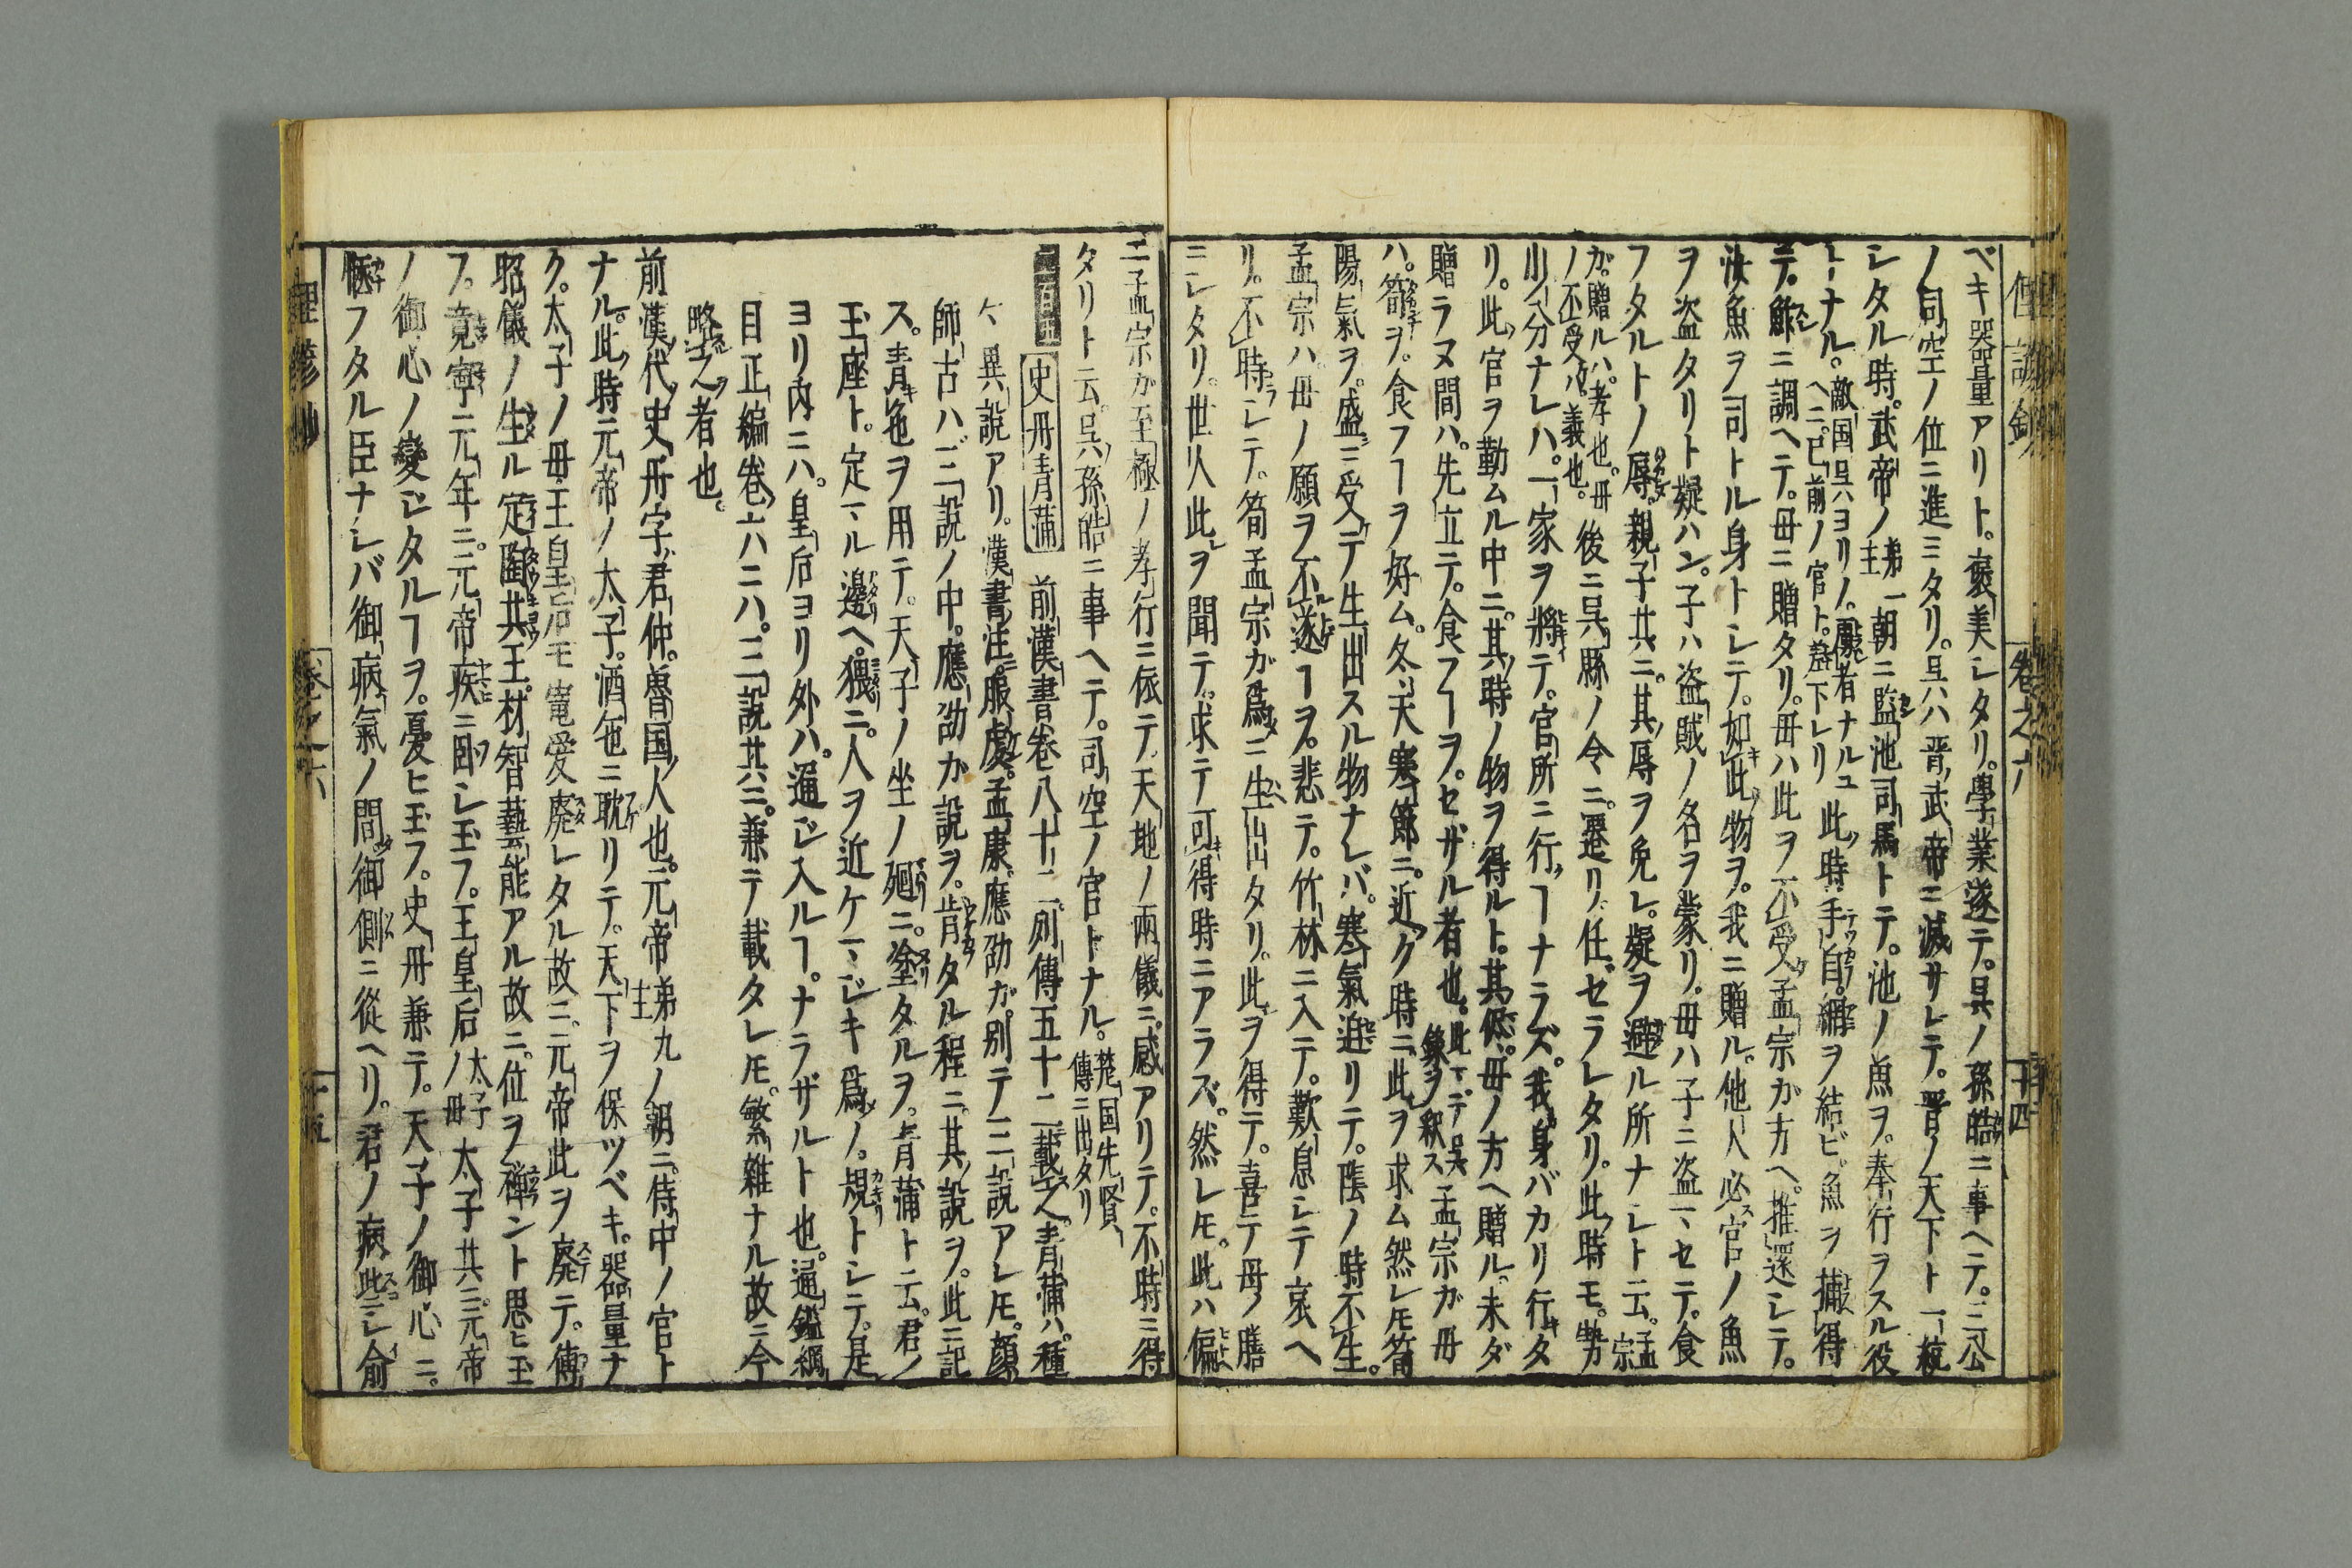 俚諺鈔 卷之六 十四
ベキ器量アリト。褒美シタリ。學業遂テ。呉ノ孫皓ニ事ヘテ。三公
ノ司空ノ位ニ進ミタリ。呉ハ晋ノ武帝ニ滅サレテ。晋ノ天下ト一統
シタル時。武帝ノ弟一主朝ニ監池司馬トテ。池ノ魚ヲ。奉行ヲスル役
トナル。敵国呉ヨリノ。属者ナルユヘニ。已前ノ官ト。諡下レリ 此時手自。網ヲ結ビ。魚ヲ捕得
テ。鮓ニ調ヘテ。母ニ贈タリ。母ハ此ヲ不受。孟宗カ方ヘ。推還シテ。
汝魚ヲ司トル身トシテ。如此物ヲ。我ニ贈ル。他人必官ノ魚
ヲ盗タリト疑ハン。子ハ盗賊ノ名ヲ蒙リ。母ハ子ニ盗マセテ。食
フタルトノ辱。親子共ニ。其辱ヲ免レ。疑ヲ避ル所ナレト云。孟宗
ガ。贈ルハ。孝也。母ノ不受ハ。義也。後ニ呉縣ノ令ニ。遷リ任ゼラレタリ。此時モ。勢
少分ナレハ。一家ヲ將テ。官所ニ行ヿナラズ。我身バカリ行タ
リ。此官ヲ勤ムル中ニ。其時ノ物ヲ得ルト。其侭。母ノ方ヘ贈ル。未ダ
贈ラヌ間ハ。先立テ。食フヿヲ。セザル者也。此マデ呉録ヲ釈ス 孟宗ガ母
ハ。筍ヲ。食フヿヲ好ム。冬天寒節ニ。近ク時ニ。此ヲ求ム然レ𪜈筍
陽氣ヲ。盛ニ受テ生出スル物ナレバ。寒氣逆リテ。陰ノ時不生。
孟宗ハ。母ノ願ヲ不遂ヿヲ。悲テ。竹林ニ入テ。歎息シテ哀ヘ
リ。不時シテ。筍孟宗ガ爲ニ生出タリ。此ヲ得テ。喜テ母ノ膳
ニシタリ。世人此ヲ聞テ。求テ可得時ニアラズ。然レ𪜈。此ハ偏
ニ孟宗カ至極ノ孝行ニ依テ。天地ノ兩儀ニ。感アリテ。不時ニ得
タリト云。呉孫皓ニ事ヘテ。司空ノ官トナル。楚国先賢傳ニ出タリ
史丹青蒲 前漢書卷八十二。列傳五十二載之。青蒲ハ。種
々異説アリ。漢書注服虔。孟康。應劭ガ。別テ三説アレ𪜈。顔
師古ハ。三説ノ中。應劭カ説ヲ。肯タル程ニ。其説ヲ。此ニ記
ス。青色ヲ用テ。天子ノ坐ノ廻ニ。塗タルヲ。青蒲ト云。君ノ
玉座ト。定マル邊ヘ。猥ニ。人ヲ近ケマジキ爲ノ。規トシテ。是
ヨリ内ニハ。皇后ヨリ外ハ。通ジ入ルヿ。ナラザルト也。通鑑綱
目正編卷六ニハ。三説共ニ。兼テ載タレ𪜈。繁雜ナル故ニ今
略之者也。
前漢代史丹字君仲。魯国人也。元帝弟九主ノ朝ニ。侍中ノ官ト
ナル。此時元帝ノ太子。酒色ニ耽リテ。天下ヲ保ツベキ。器量ナ
ク。太子ノ母王皇后モ寵愛廃レタル故ニ。元帝此ヲ廃テ。傅
昭儀ノ生ル定陶共王。材智藝能アル故ニ。位ヲ禅ント思ヒ玉
フ。竟寧元年ニ。元帝疾ニ臥シ玉フ。王皇后ノ太子母 太子共ニ。元帝
ノ御心ノ變ジタルヿヲ。憂ヒ玉フ。史丹兼テ。天子ノ御心ニ。
愜フタル臣ナレバ御病氣ノ間。御側ニ從ヘリ。君ノ病些シ愈
卷之六 十五